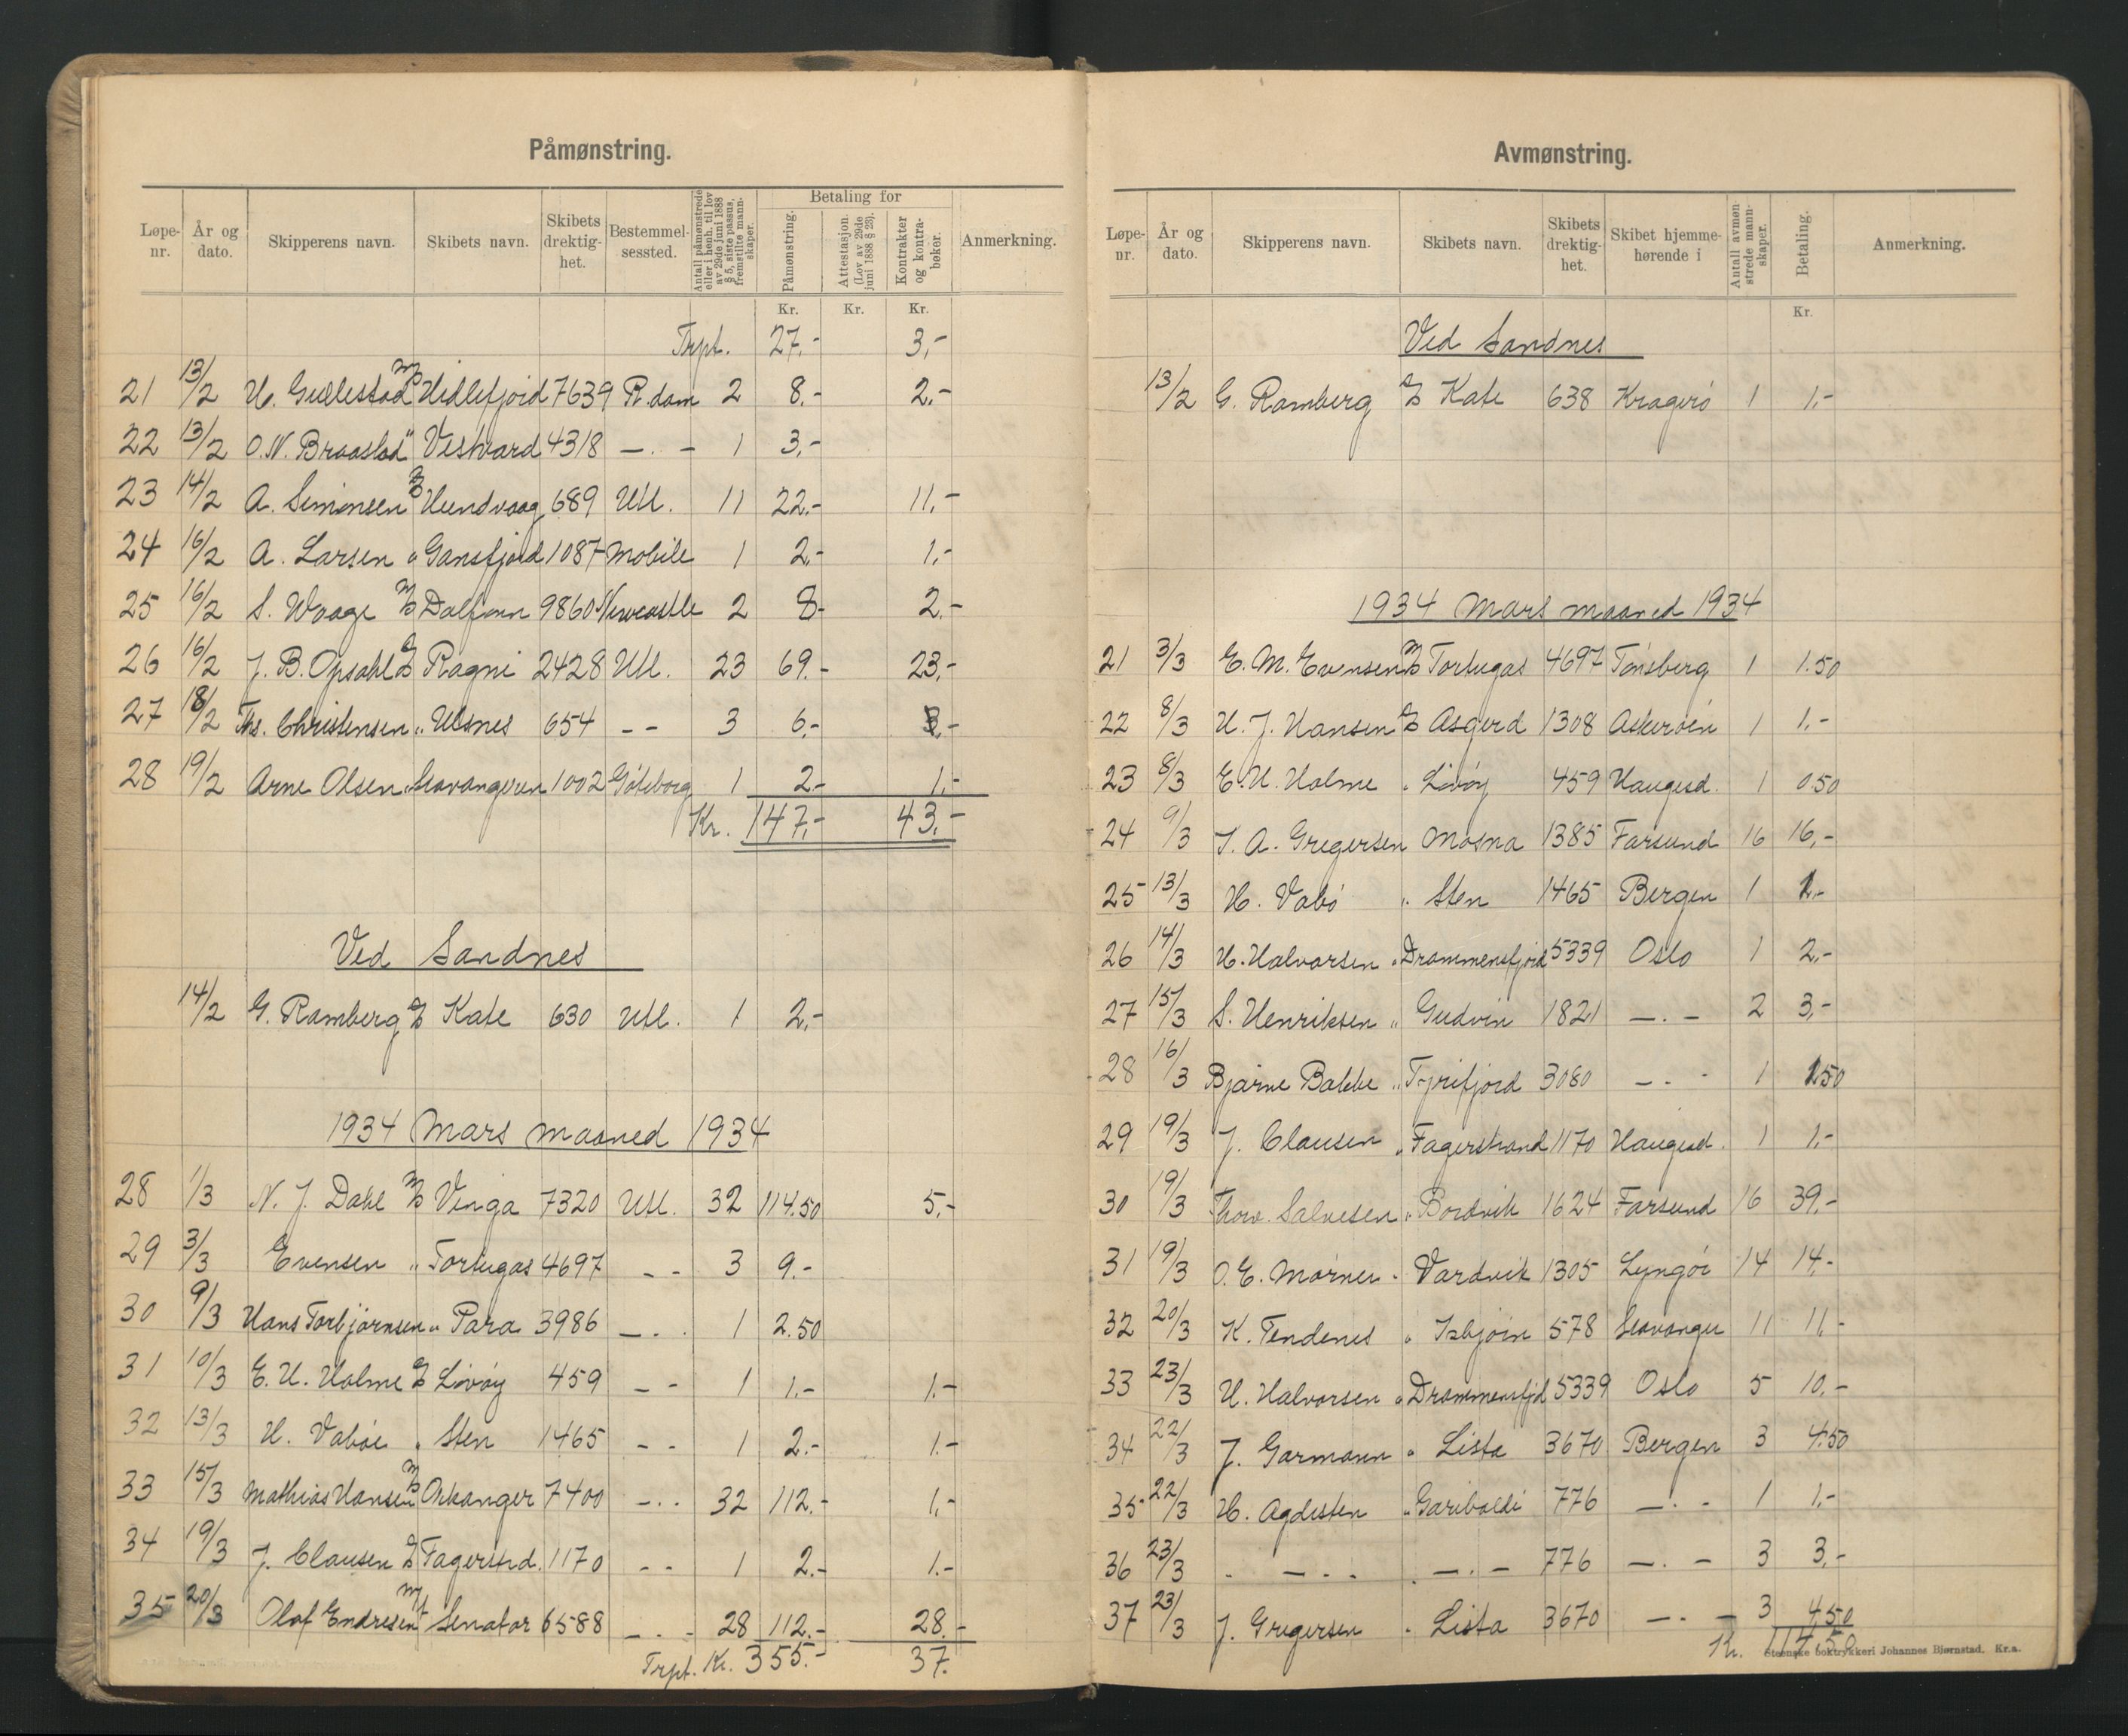 Påmønstring.
Løpe-nr. År og dato. Skipperens navn. Skibets navn. Skibets drektig-het. Bestemmel-sessted. Antall påmønstrede eller i henh. til lov av 29de juni 1888 § 5, siste passus, fremstilte mann-skaper. Betaling for Påmønstring. Attestasjon. (Lov av 29de juni 1888 § 23). Kontrakter og kontra-bøker. Anmerkning.
Kr. Kr. Kr.
Trpt. 27.- 3,-
21 13/2 H. Gullestad M/S Hidlefjord 7639 R.dam 2 8.- 2.-
22 13/2 O.N. Braastad " Vestvard 4318 —.— 1 3,-
23 14/2 A. Simonsen D/S Hundvaag 689 Utl. 11 22.- 11,-
24 16/2 A. Larsen " Gansfjord 1087 Mobile 1 2,- 1,-
25 16/2 S. Waage M/S Dalfonn 9860 Newcastle 2 8- 2.-
26 16/2 J. B. Opsahl D/S Ragni 2428 Utl. 23 69.- 23,-
27 18/2 Ths. Christensen " Ulsnes 654 - - 3 6,- 3,-
28 19/2 Arne Olsen " Stavangeren 1002 Göteborg 1 2.- 1.-
Kr. 147,- 43,-
Ved Sandnes
14/2 G. Ramberg D/S Kate 630 Utl. 1 2,-
1934 Mars maaned 1934
28 1/3 N. J. Dahl M/S Vinga 7320 Utl. 32 114.50 5,-
29 3/3 Evensen " Tortugas 4697 - - 3 9.-
30 9/3 Hans Torbjörnsen " Para 3986 —. . 1 2.50
31 10/3 E. H. Holme D/S Livöy 459 - - 1 1.- 1.-
32 13/3 H. Vaböe " Sten 1465 - - 1 2.- 1.-
33 15/3 Mathias Hansen M/S Orkanger 7400 -.. 32 112.- 1,-
34 19/3 J. Clausen D/S Fagerstrd. 1170 - - 1 2.- 1.-
35 20/3 Olaf Endresen M/T Senator 6588 - . - 28 112.- 28.-
Trpt. Kr. 355.- 37.
Avmønstring.
Løpe-nr. År og dato. Skipperens navn. Skibets navn. Skibets drektig-het. Skibet hjemme-hørende i Antall avmøn strede mann-skaper. Betaling. Anmerkning.
Kr.
Ved Sandnes
13/2 G. Ramberg D/S Kate 638 Kragerö 1 1.-
1934 Mars maaned 1934
21 3/3 E. M. Evensen M/S Tortugas 4697 Tönsberg 1 1.50
22 8/3 H. J. Hansen D/S Asgerd 1308 Askeröen 1 1,-
23 8/3 E. H. Holme " Livöy 459 Haugesd. 1 0.50
24 9/3 J. A. Gregersen Mosna 1385 Farsund 16 16,-
25 13/3 H. Vabö " Sten 1465 Bergen 1 1.-
26 14/3 H. Halvorsen " Drammensfjord 5339 Oslo 1 2,-
27 15/3 S. Henriksen " Gudvin 1821 —.— 2 3,-
28 16/3 Bjarne Bakke " Tyrifjord 3080 —.- 1 1.50
29 19/3 J. Clausen " Fagerstrand 1170 Haugesd. 1 1.-
30 19/3 Thorv. Salvesen " Bordvik 1624 Farsund 16 39,-
31 19/3 O. E. Mörner " Vardvik 1305 Lyngör 14 14,-
32 20/3 K. Tendenes " Isbjörn 578 Stavanger 11 11,-
33 23/3 H. Halvorsen " Drammensfjd 5339 Oslo 5 10,-
34 22/3 J. Garmann " Lista 3670 Bergen 3 4.50
35 22/3 H. Agdesten " Garibaldi 776 —.- 1 1,-
36 23/3 - —.. .—.— 776 —.— 3 3,-
37 23/3 J. Gregersen " Lista 3670 —.— 3 4.50
Kr. 114.50
Steenske boktrykkeri Johannes Bjørnstad. Kr.a.